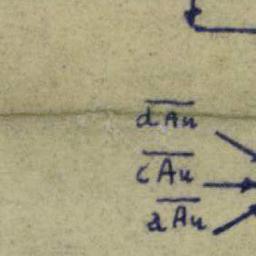 dAu
cAu
aAu